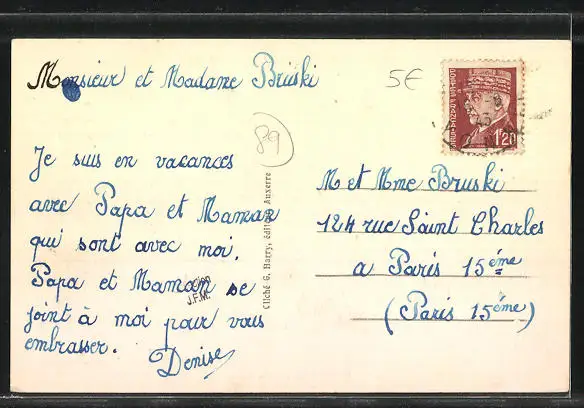 Monsieur et Madame Bruski
5€
89
Je suis en vacances
avec Papa et Maman
qui sont avec moi.
Papa et Maman se
joint à moi pour vous
embrasser.
Denise
J.F.M.
Cliché G. Harry, édition Auxerre
1F20
M et Mme Bruski
124 rue Saint Charles
a Paris 15ème
(Paris 15ème)